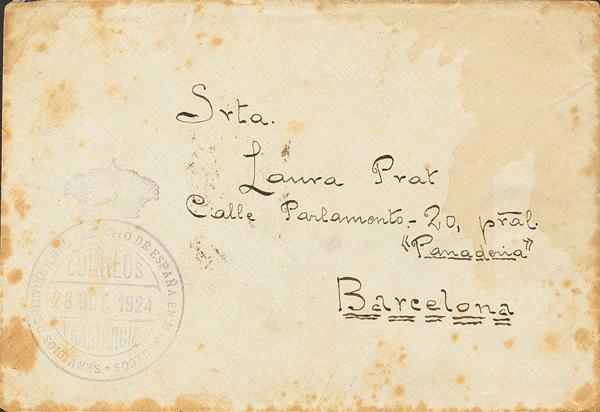 Srta.
Laura Prat
Calle Parlamento.- 20, pral.
"Panaderia"
Barcelona
EJERCITO DE ESPAÑA EN
CORREOS
28 OCT. 1924
FRANQUICIA